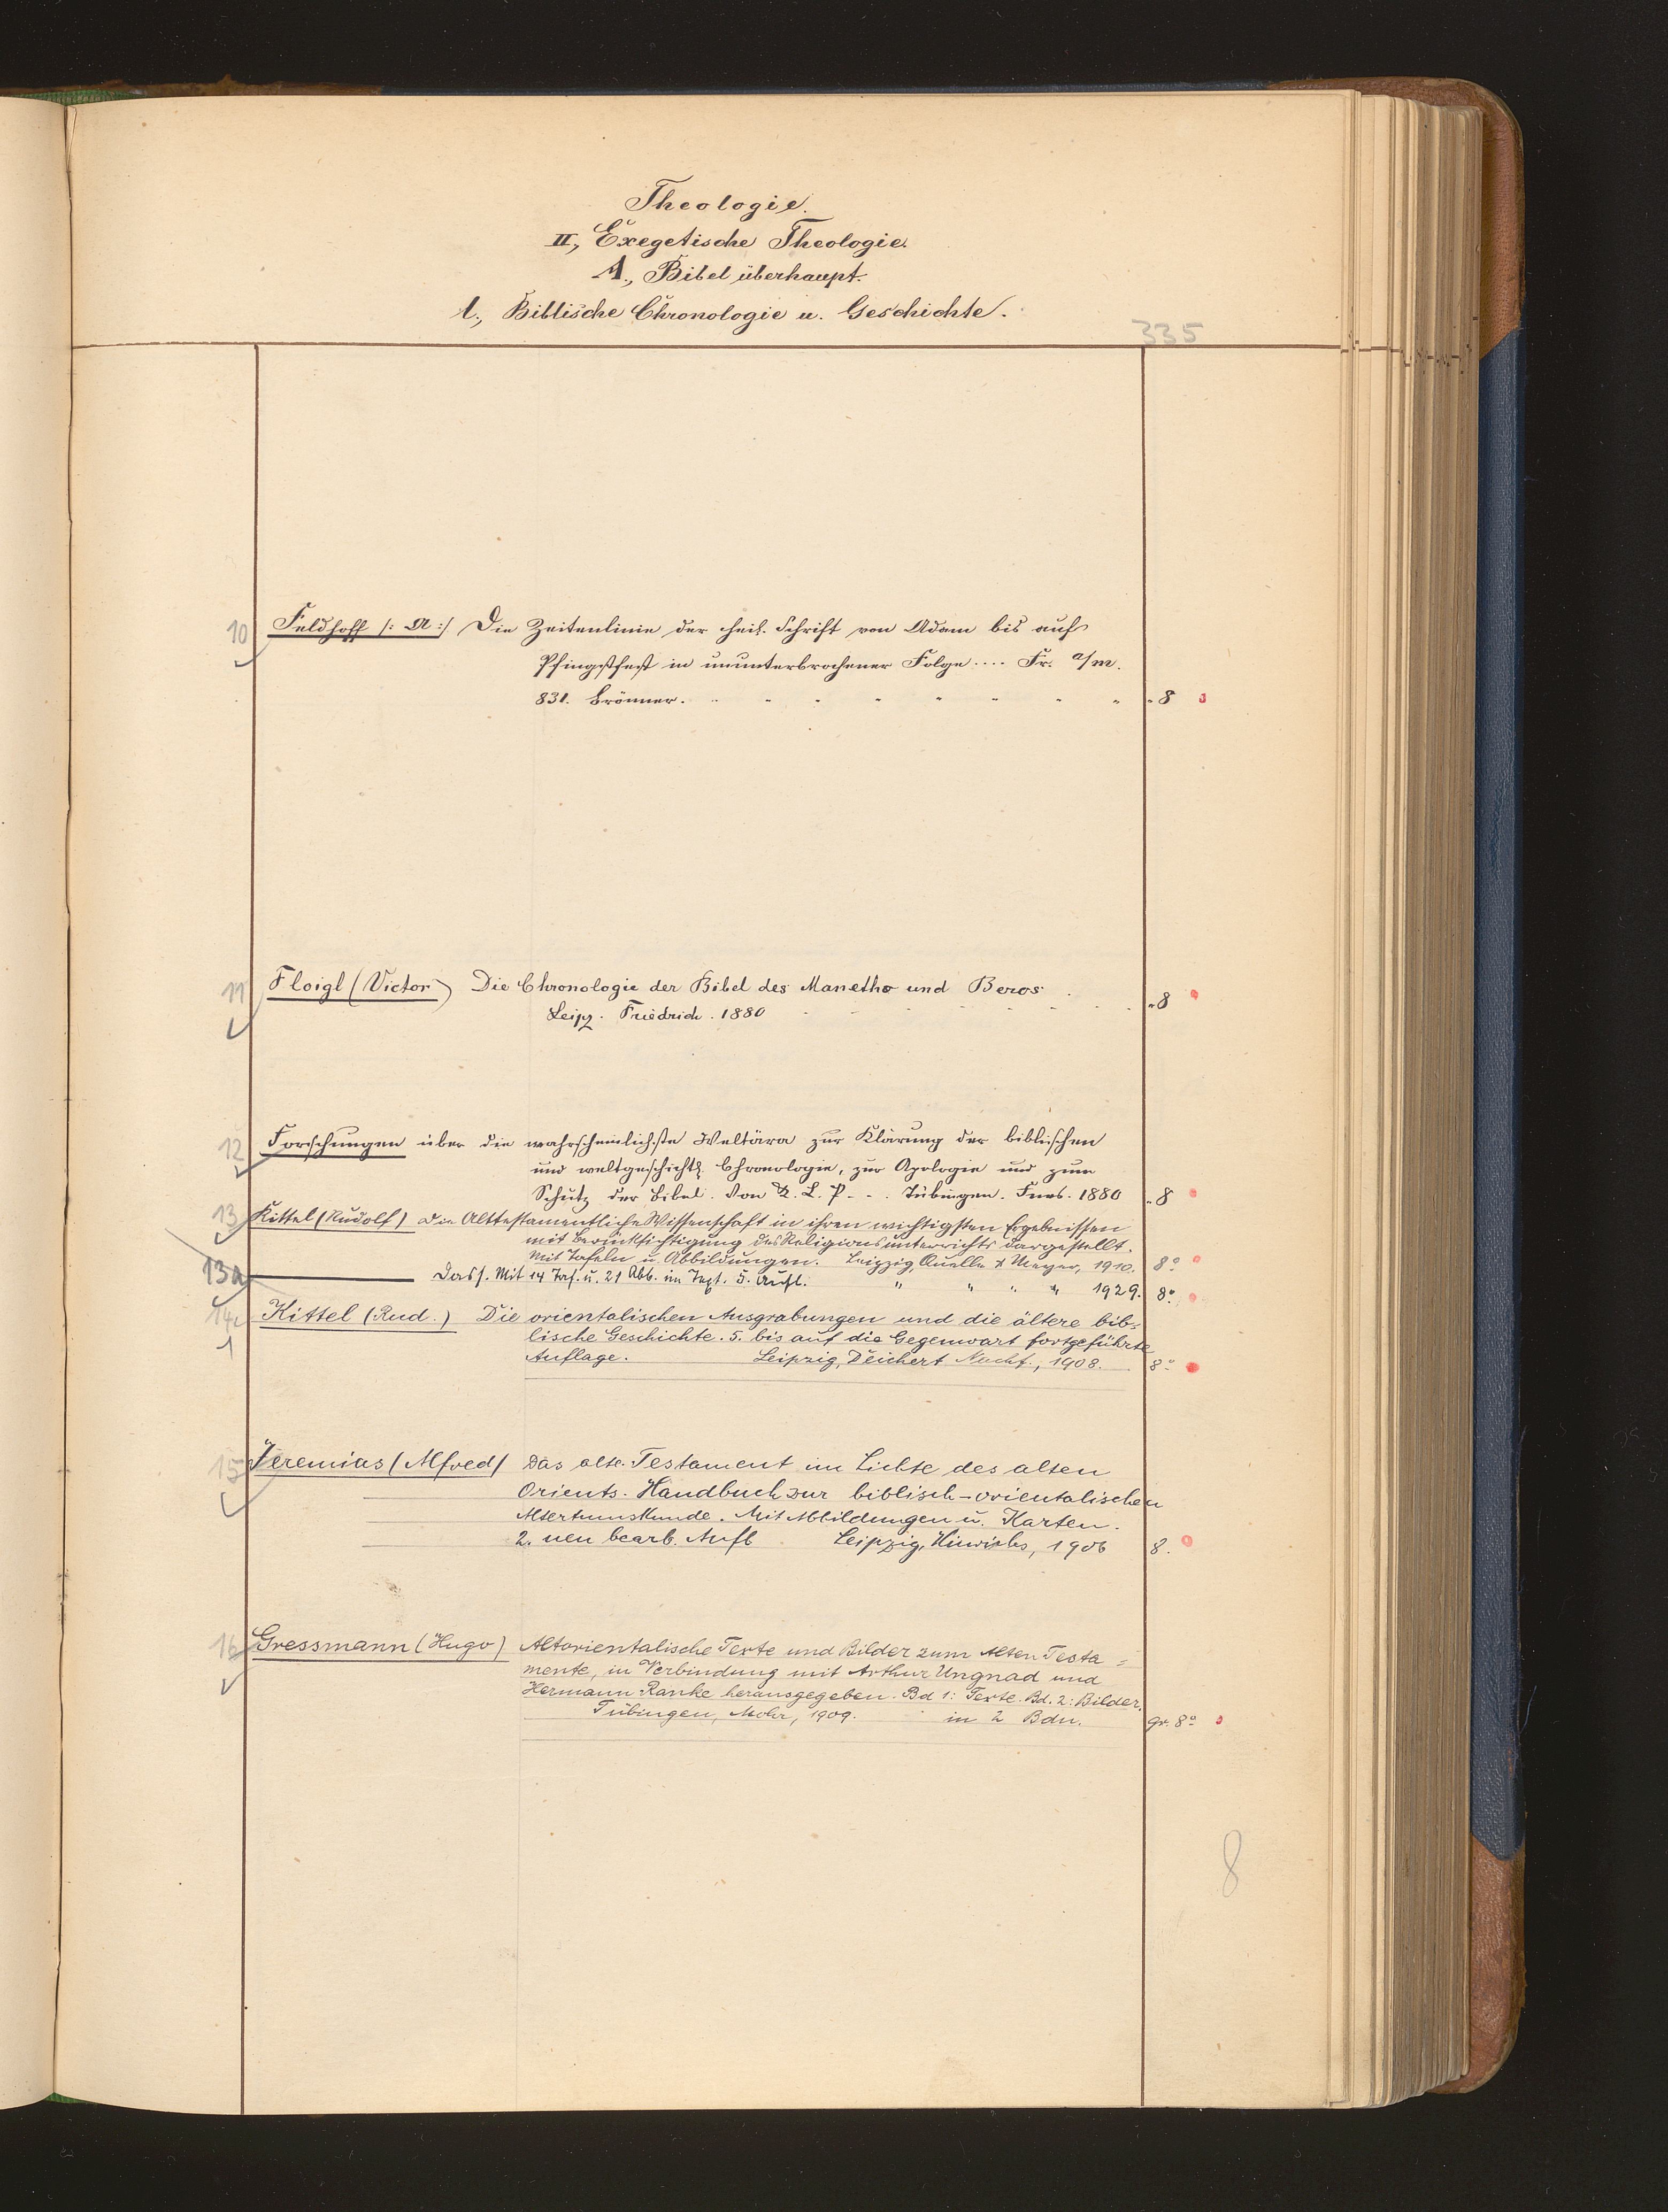 Theologie.
II, Exegetische Theologie.
A., Bibel überhaupt.
l., Biblische Chronologie u. Geschichte.
335
10 Feldhoff /: A :/ Die Zeitenlinie der heil. Schrift von Adam bis auf
Pfingstfest in ununterbrochener Folge .... Fr. a/m.
831. Brönner. " 8
11 Floigl (Victor) Die Chronologie der Bibel des Manetho und Beros.
Leipz. Friedrich. 1880 " 8
12 Forschungen über die wahrscheinlichste Weltära zur Klärung der biblischen
und weltgeschichtl. Chronologie, zur Apologie und zum
Schutz der Bibel. Von L. P. - . Tübingen. Fues. 1880 " 8
13 Kittel (Rudolf) Die Alttestamentliche Wissenschaft in ihren wichtigsten Ergebnissen
mit Berücksichtigung des Religionsunterrichts dargestellt.
Mit Tafeln u. Abbildungen. Leipzig, Quelle & Meyer, 1910. 8°
13a Dass. Mit 14 Taf. u. 21 Abb. im Text. 5. Aufl. " " " " 1929. 8°
14 Kittel (Rud.) Die orientalischen Ausgrabungen und die ältere bib-
1 lische Geschichte. 5. bis auf die Gegenwart fortgeführte
Auflage. Leipzig, Deichert Nachf., 1908. 8°
15 Jeremias (Alfred) Das alte Testament im Lichte des alten
Orients. Handbuch zur biblisch-orientalischen
Altertumskunde. Mit Abbildungen u. Karten.
2. neu bearb. Aufl Leipzig, Hinrichs, 1906 8.
16 Gressmann (Hugo) Altorientalische Texte und Bilder zum Alten Testa=
mente, in Verbindung mit Arthur Ungnad und
Hermann Ranke herausgegeben. Bd 1: Texte. Bd. 2: Bilder.
Tübingen, Mohr, 1909. in 2 Bdn. gr. 8°
8